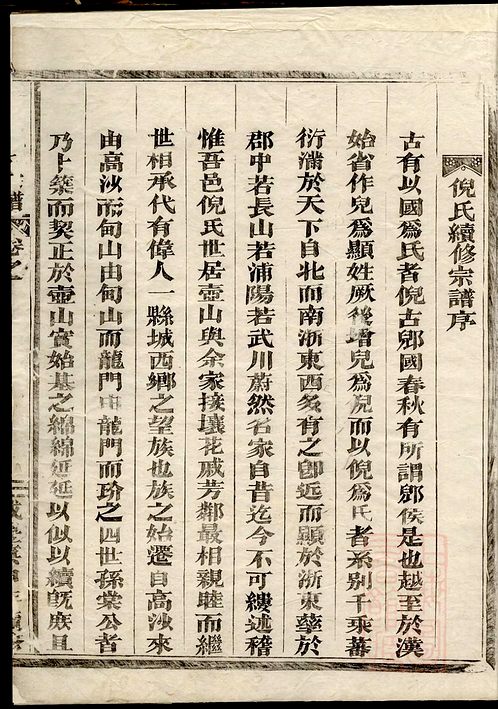 倪氏續修宗譜序
古有以國爲氏者倪古郳國春秋有所謂郳侯是也越至於漢
始省作兒爲顯姓厥後增兒爲倪而以倪爲氏者系別千乘蕃
衍滿於天下自北而南浙東西多有之卽近而顯於浙東婺於
郡中若長山若浦陽若武川蔚然名家自昔迄今不可縷述稽
惟吾邑倪氏世居壺山與余家接壤花戚芳鄰最相親睦而繼
世相承代有偉人一縣城西鄉之望族也族之始遷自高沙來
由高沙而甸山由甸山而龍門由龍門而玠之四世孫棠公者
乃卜築而契正於壺山實始基之綿綿延延以似以續旣庶且
譜